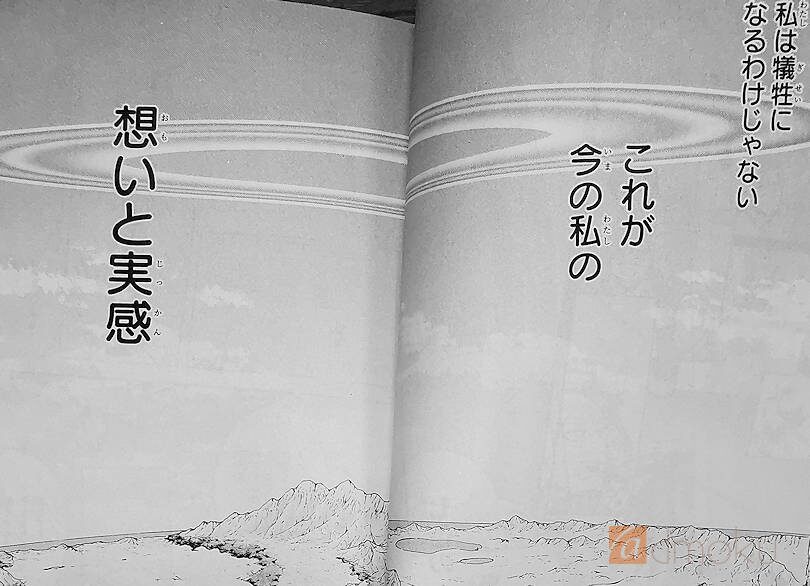 私は犠牲に
なるわけじゃない
これが
今の私の
想いと実感